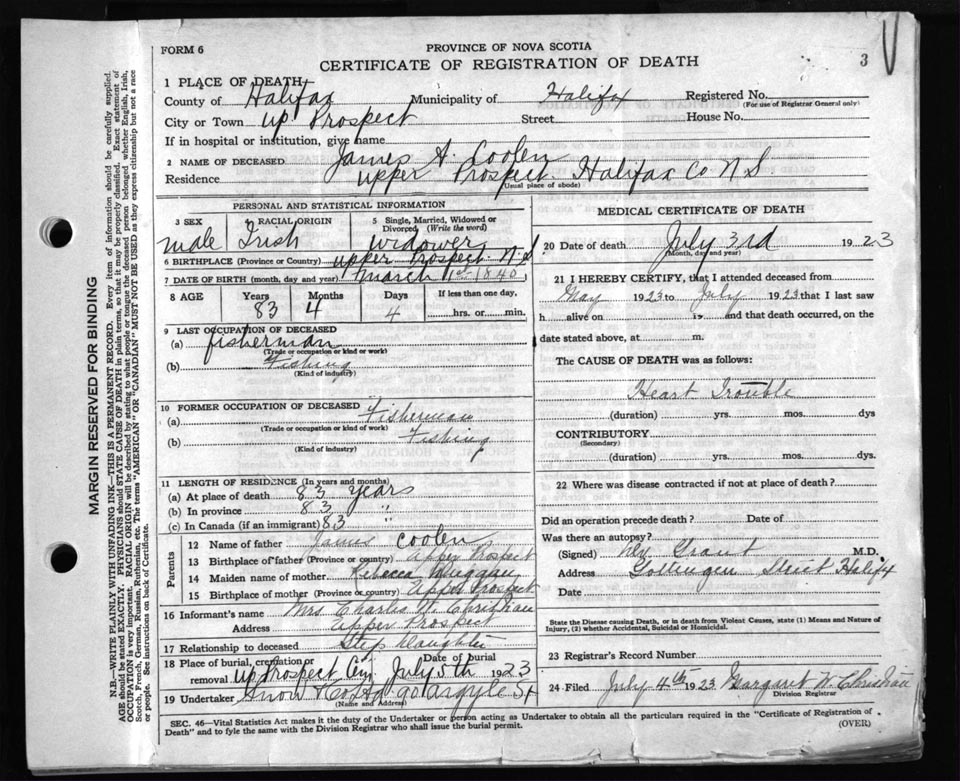 FORM 6
PROVINCE OF NOVA SCOTIA
CERTIFICATE OF REGISTRATION OF DEATH
3
1 PLACE OF DEATH
County of Halifax Municipality of Halifax Registered No.
(For use of Registrar General only)
City or Town up Prospect Street House No.
If in hospital or institution, give name
2 NAME OF DECEASED James A. Coolen
Residence upper Prospect. Halifax Co N S
(Usual place of abode)
PERSONAL AND STATISTICAL INFORMATION
3 SEX 4 RACIAL ORIGIN 5 Single, Married, Widowed or Divorced (Write the word)
male Irish widower
6 BIRTHPLACE (Province or Country) upper Prospect N S
7 DATE OF BIRTH (month, day and year) March 1st 1840
8 AGE Years Months Days If less than one day,
83 4 4 hrs. or min.
9 LAST OCCUPATION OF DECEASED
(a) fisherman
(Trade or occupation or kind or work)
(b) Fishing
(Kind of industry)
10 FORMER OCCUPATION OF DECEASED
(a) Fisherman
(Trade or occupation or kind of work)
(b) Fishing
(Kind of industry)
11 LENGTH OF RESIDENCE (In years and months)
(a) At place of death 83 years
(b) In province 83 "
(c) In Canada (if an immigrant) 83 "
Parents
12 Name of father James Coolen
13 Birthplace of father (Province or country) Upper Prospect
14 Maiden name of mother Rebecca Duggan
15 Birthplace of mother (Province or country) Upper Prospect
16 Informant's name Mrs Charles W. Christian
Address Upper Prospect
17 Relationship to deceased Step daughter
18 Place of burial, cremation or removal up Prospect Cem Date of burial July 5th 1923
19 Undertaker Snow & Co Ltd 90 Argyle St
(Name and Address)
MEDICAL CERTIFICATE OF DEATH
20 Date of death July 3rd 1923
(Month, day and year)
21 I HEREBY CERTIFY, that I attended deceased from
May 1923 to July 1923 that I last saw
h alive on 19 and that death occurred, on the
date stated above, at m.
The CAUSE OF DEATH was as follows:
Heart Trouble
(duration) yrs. mos. dys
CONTRIBUTORY
(Secondary)
(duration) yrs. mos. dys.
22 Where was disease contracted if not at place of death?
Did an operation precede death? Date of
Was there an autopsy?
(Signed) Dr Grant M.D.
Address Gottingen Street Halifx
Date
State the Disease causing Death, or in death from Violent Causes, state (1) Means and Nature of Injury, (2) whether Accidental, Suicidal or Homicidal.
23 Registrar's Record Number
24 Filed July 4th 1923 Margaret W. Christian
Division Registrar
SEC. 46—Vital Statistics Act makes it the duty of the Undertaker or person acting as Undertaker to obtain all the particulars required in the "Certificate of Registration of
Death" and to fyle the same with the Division Registrar who shall issue the burial permit.
(OVER)
MARGIN RESERVED FOR BINDING
N.B.—WRITE PLAINLY WITH UNFADING INK—THIS IS A PERMANENT RECORD. Every item of information should be carefully supplied.
AGE should be stated EXACTLY. PHYSICIANS should STATE CAUSE OF DEATH in plain terms, so that it may be properly classified. Exact statement of
OCCUPATION is very important. RACIAL ORIGIN will be described by stating to what people or tongue the deceased person belonged whether English, Irish,
Scotch, French, German, Russian, Ruthenian, etc. The terms "AMERICAN" OR "CANADIAN" MUST NOT BE USED as they express citizenship but not a race
or people. See instructions on back of Certificate.